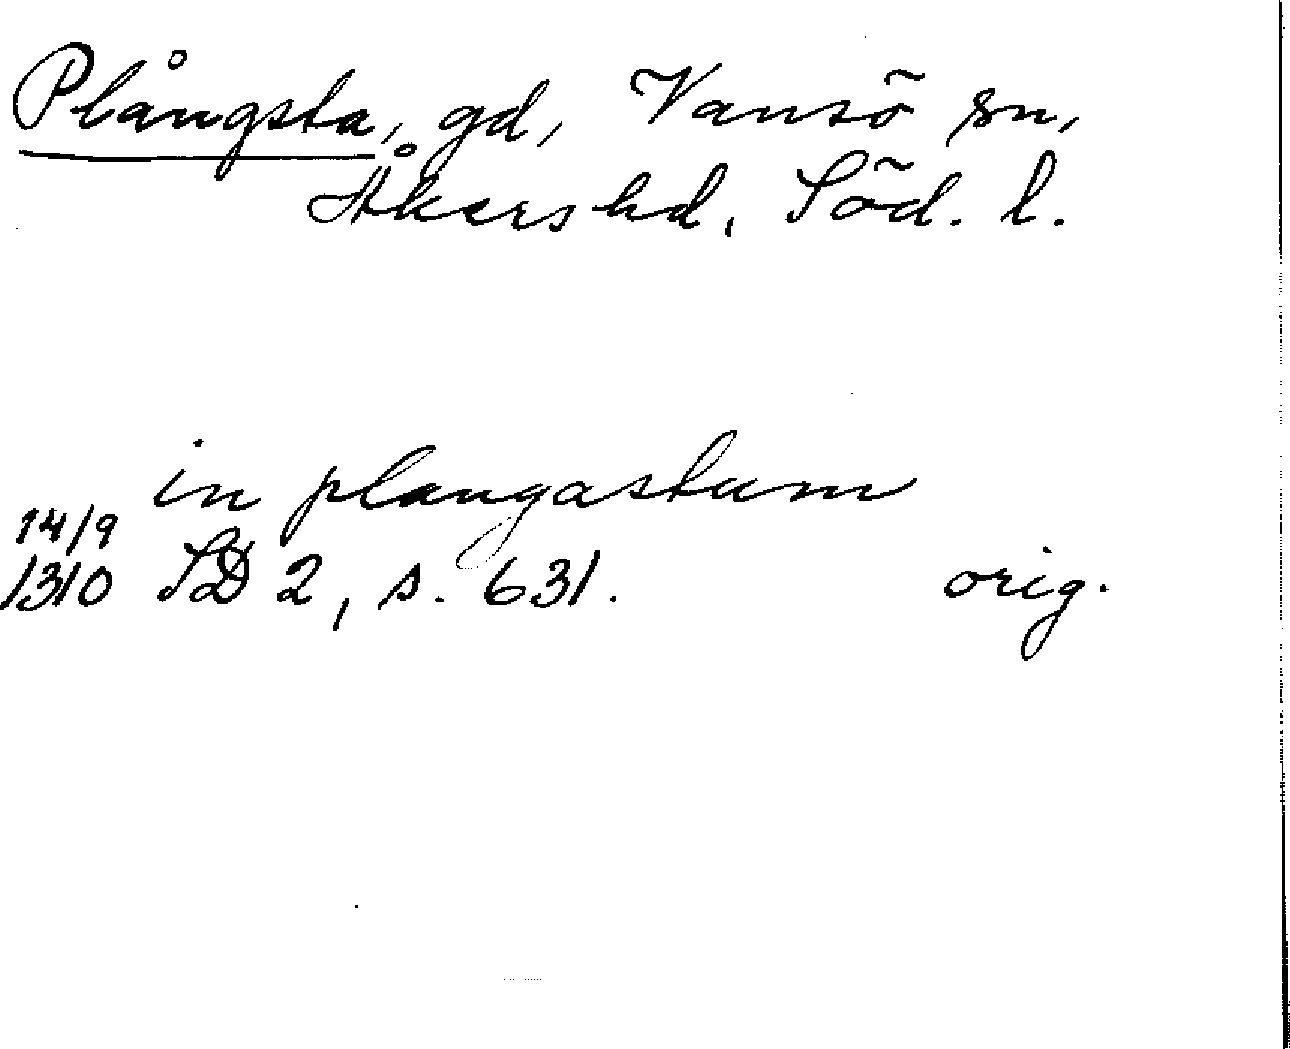 Plångsta, gd, Vansö sn,
Åkers hd, Söd. l.
in plangastum
14/9
1310 SD 2, s. 631. orig.